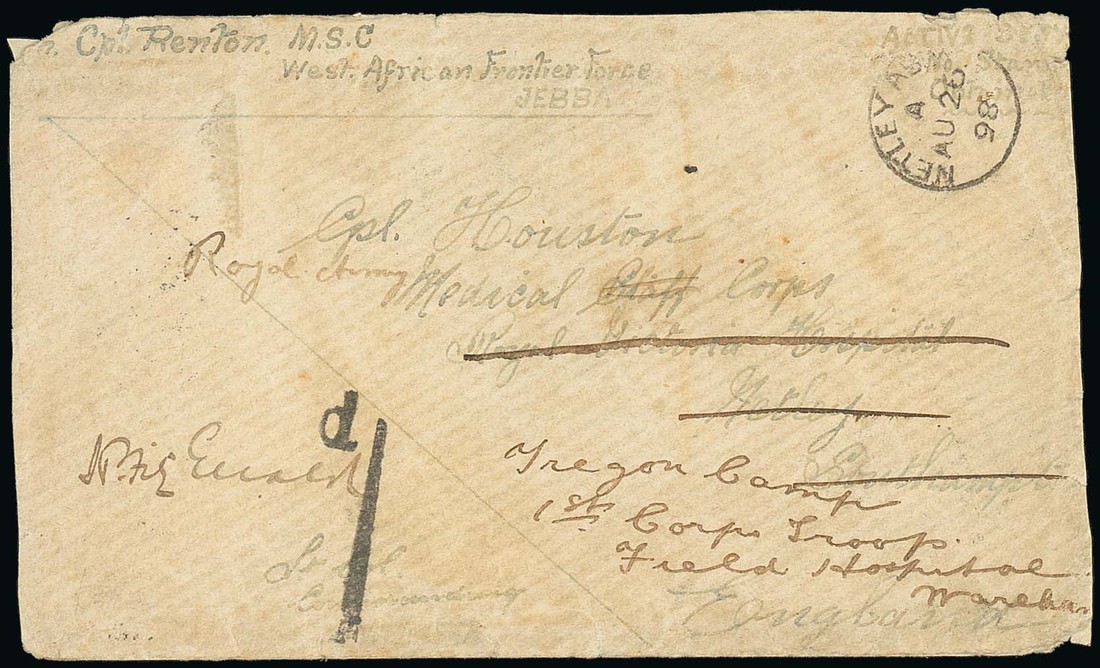 Cpl. Renton. M.S.C
West African Frontier Force
JEBBA
Active
No Stam
NETLEY AB
A
AU 26
98
Cpl. Houston
Royal Army
Medical Staff Corps
Royal Victoria Hospital
Netley
1d
Tregon Camp
1st Corps Troop.
Field Hospital
Wareham
Lt Col.
Commanding